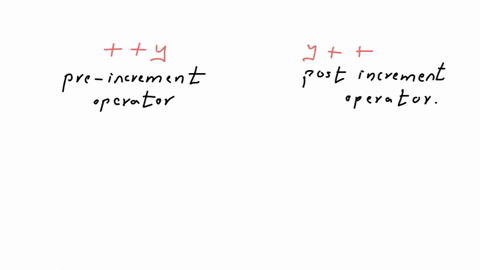 ++y
pre-increment
operator
y++
post increment
operator.